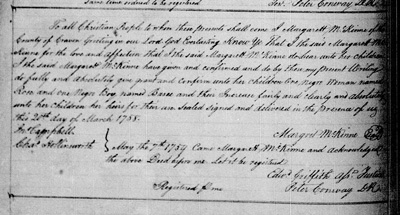 same time ordered to be registered Test Peter Conway
To all Christian People to whom these presents shall come I Margarett McKinne of the
County of Craven Greeting in our Lord God Everlasting Know Ye That I the said Margarett Mc
Kinne for the love and affection that I the said Margarett McKinne do bear unto her children
I the said Margarett McKinne have given and confirmed and by these present
do fully and absolutely give grant and confirm unto her children One Negro Woman named
and one Negro Boy named and their Increase freely and clearly and absolutely
unto her children her heirs for their own Sealed signed and delivered in the presence of us
this 20th day of March 1755.
Margret McKinne
May the 7th 1754 Came Margarett McKinne and acknowledged
the above Deed before me. Let it be registered
Griffith
Registered per me Peter Conway